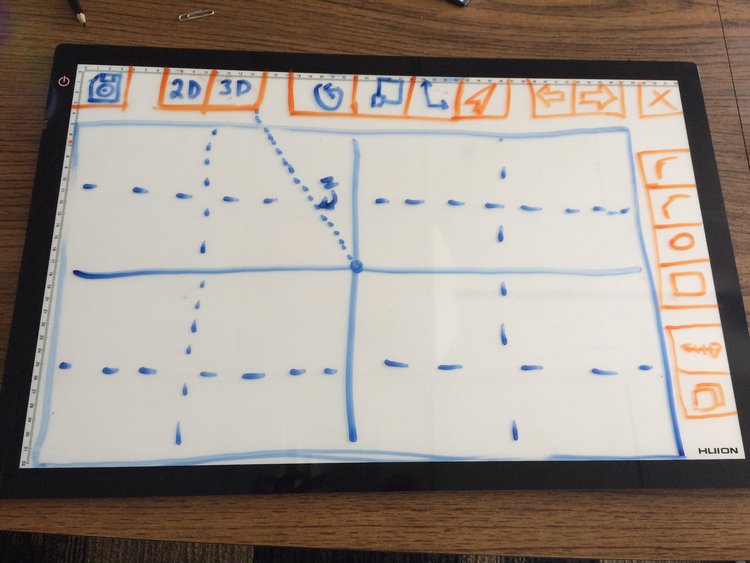 2D 3D
N
HUION